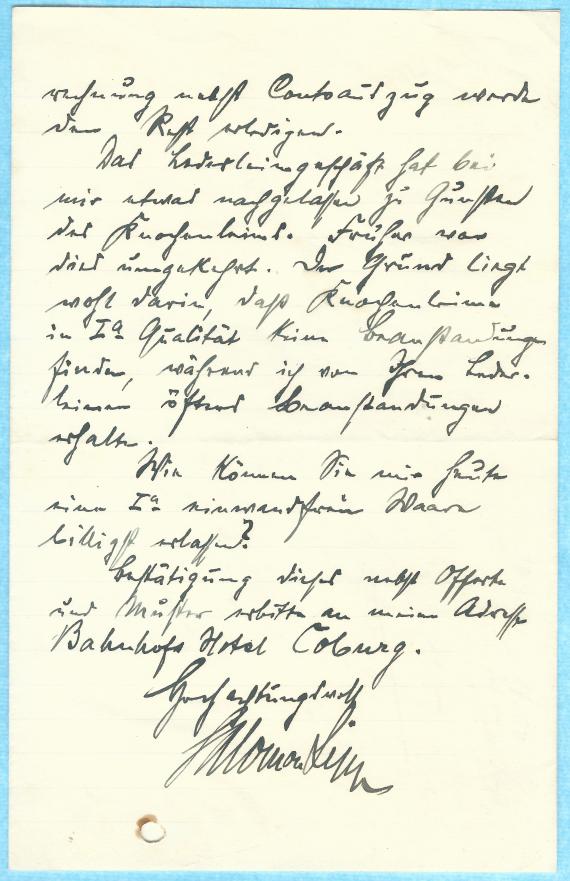 rechnung nebst Contoauszug werde
den Rest erledigen.
Das Lederleimgeschäft hat bei
mir etwas nachgelassen zu Gunsten
des Knochenleims. Früher war
dies umgekehrt. Der Grund liegt
wohl darin, daß Knochenleime
in Iª Qualität keine Beanstandungen
finden, während ich von Ihren Leder-
leimen öfters Beanstandungen
erhalte.
Wie können Sie mir heute
eine Iª einwandfreie Waare
billigst erlassen?
Bestätigung dieses nebst Offerte
und Muster erbitte an meine Adresse
Bahnhofs Hotel Coburg.
Hochachtungsvoll
Salomon